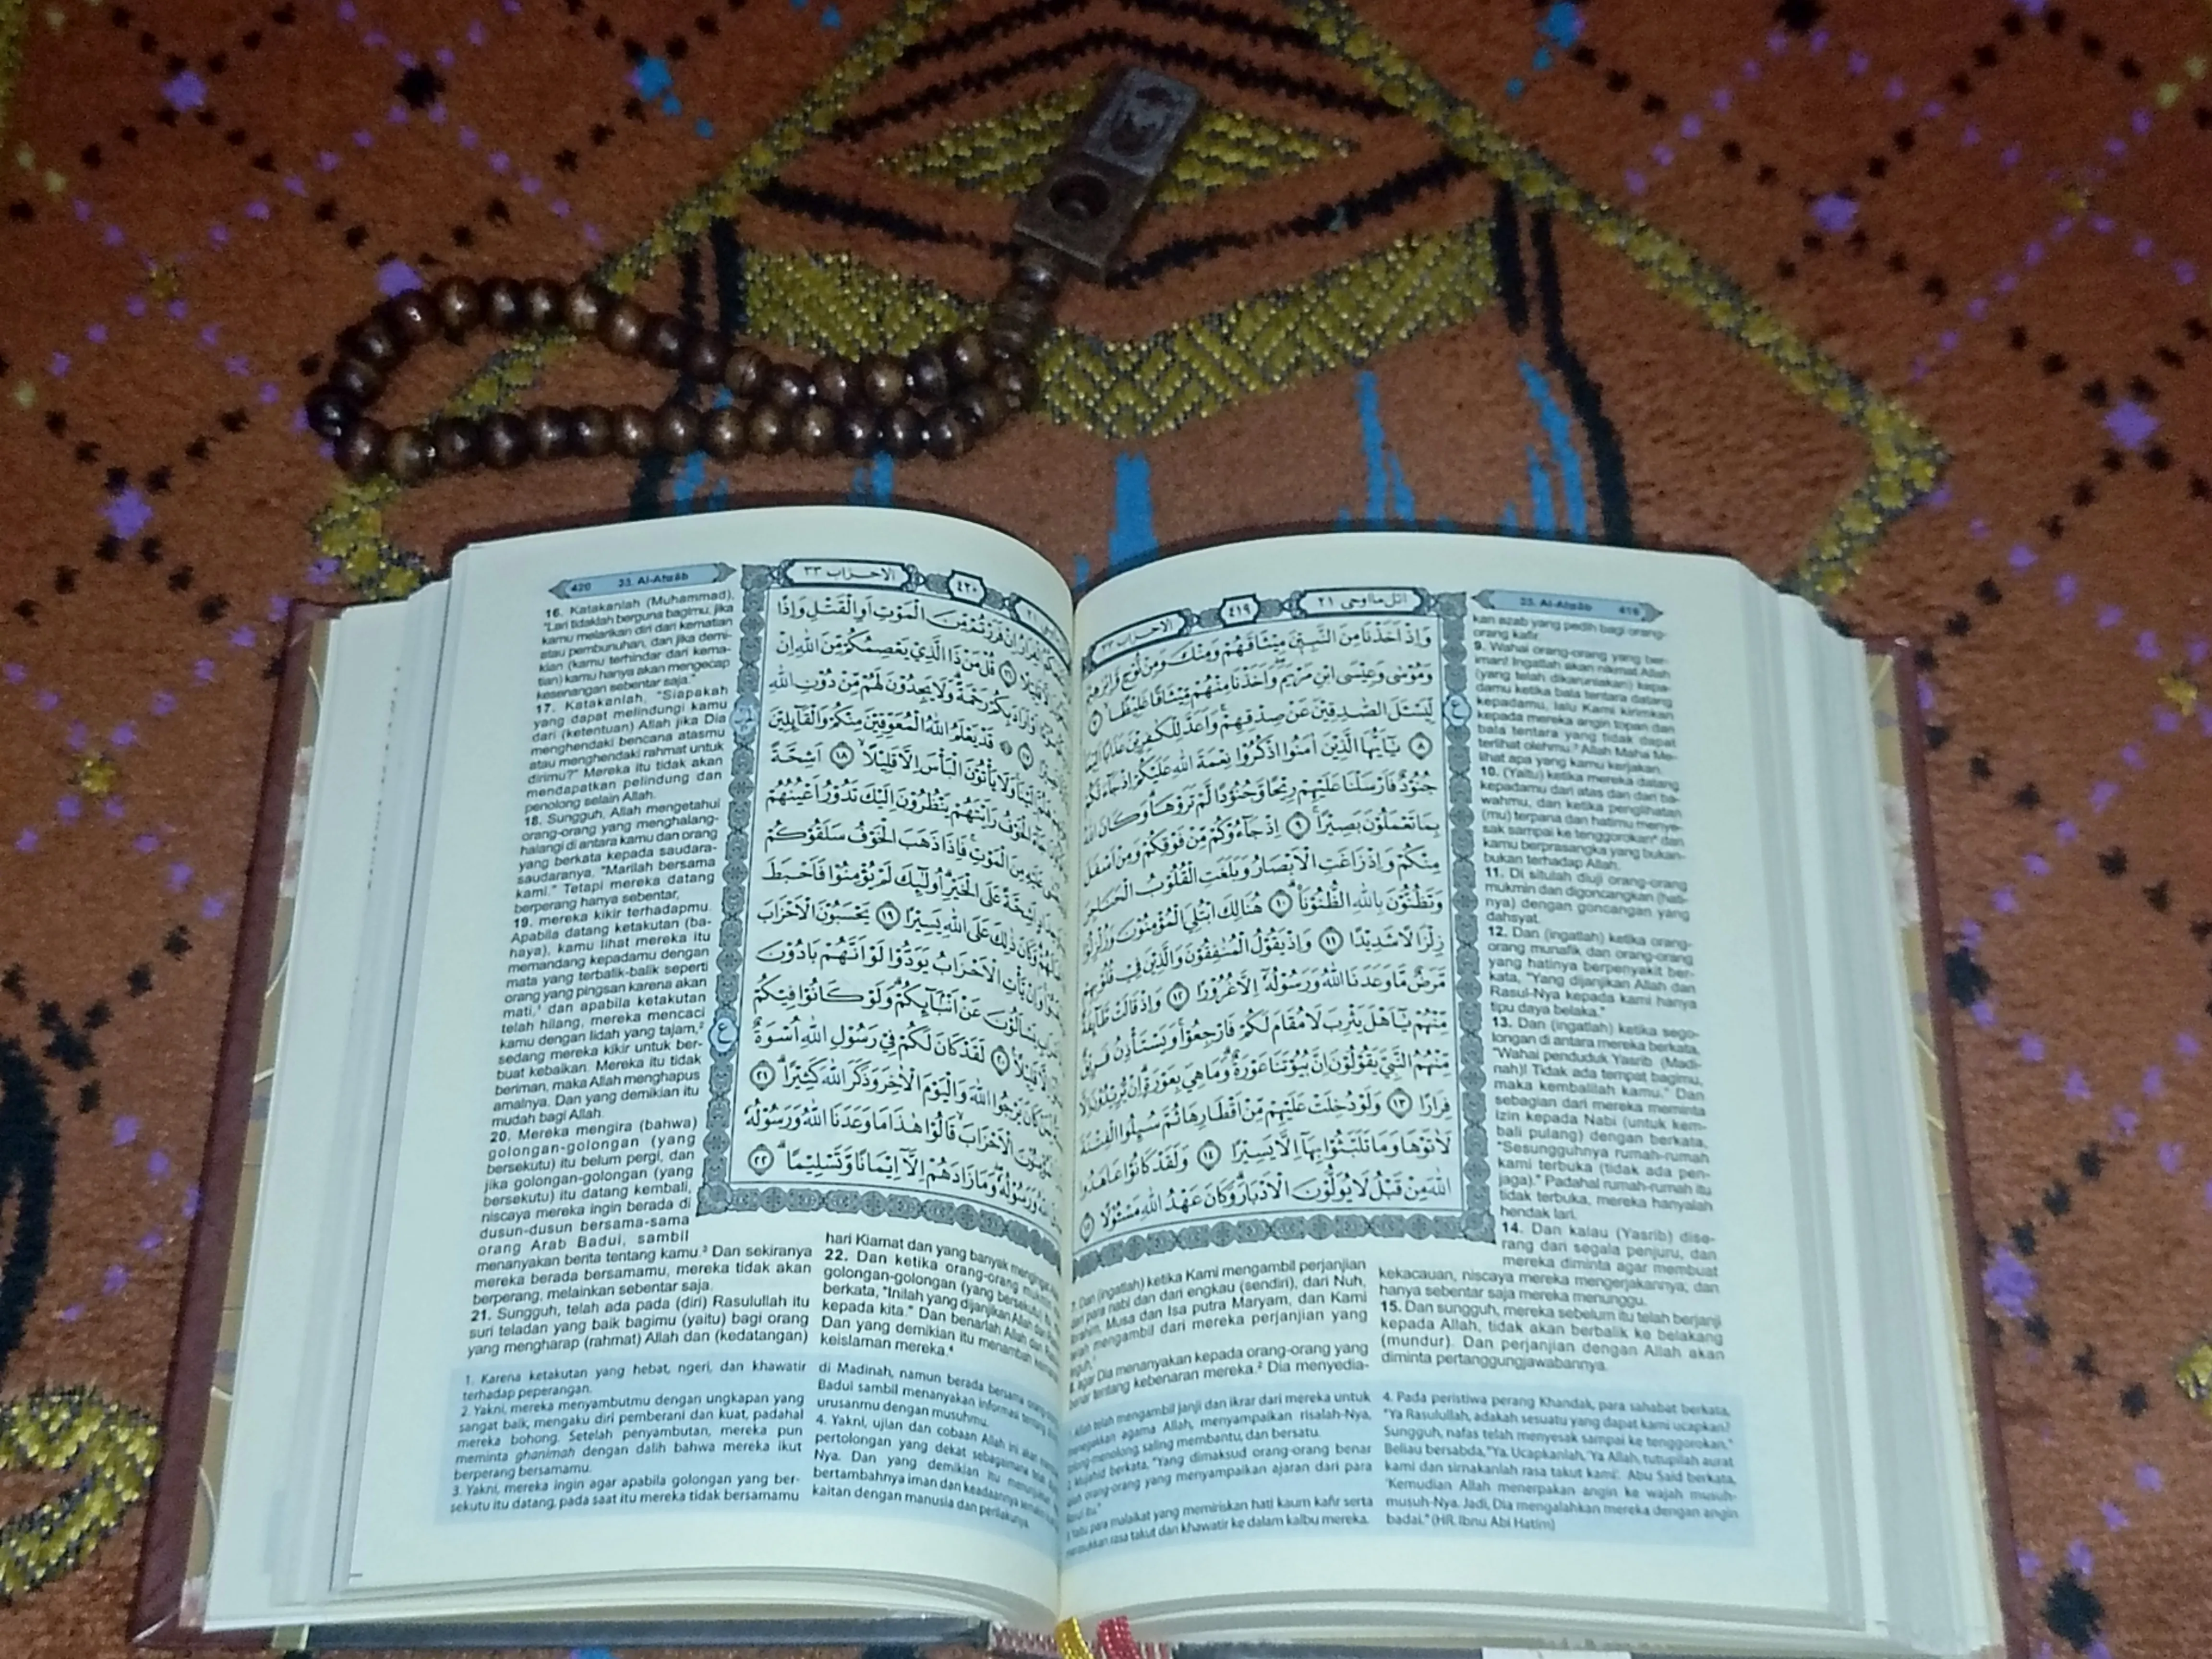 420 33. Al-Ahzāb
16. Katakanlah (Muhammad),
"Lari tidaklah berguna bagimu, jika
kamu melarikan diri dari kematian
atau pembunuhan, dan jika demi-
kian (kamu terhindar dari kema-
tian) kamu hanya akan mengecap
kesenangan sebentar saja."
17. Katakanlah, "Siapakah
yang dapat melindungi kamu
dari (ketentuan) Allah jika Dia
menghendaki bencana atasmu
atau menghendaki rahmat untuk
dirimu?" Mereka itu tidak akan
mendapatkan pelindung dan
penolong selain Allah.
18. Sungguh, Allah mengetahui
orang-orang yang menghalang-
halangi di antara kamu dan orang
yang berkata kepada saudara-
saudaranya, "Marilah bersama
kami." Tetapi mereka datang
berperang hanya sebentar,
19. mereka kikir terhadapmu.
Apabila datang ketakutan (ba-
haya), kamu lihat mereka itu
memandang kepadamu dengan
mata yang terbalik-balik seperti
orang yang pingsan karena akan
mati,¹ dan apabila ketakutan
telah hilang, mereka mencaci
kamu dengan lidah yang tajam,²
sedang mereka kikir untuk ber-
buat kebaikan. Mereka itu tidak
beriman, maka Allah menghapus
amalnya. Dan yang demikian itu
mudah bagi Allah.
20. Mereka mengira (bahwa)
golongan-golongan (yang
bersekutu) itu belum pergi, dan
jika golongan-golongan (yang
bersekutu) itu datang kembali,
niscaya mereka ingin berada di
dusun-dusun bersama-sama
orang Arab Badui, sambil
menanyakan berita tentang kamu.³ Dan sekiranya
mereka berada bersamamu, mereka tidak akan
berperang, melainkan sebentar saja.
21. Sungguh, telah ada pada (diri) Rasulullah itu
suri teladan yang baik bagimu (yaitu) bagi orang
yang mengharap (rahmat) Allah dan (kedatangan)
hari Kiamat dan yang banyak
22. Dan ketika orang-orang
golongan-golongan (yang bersekutu)
berkata, "Inilah yang dijanjikan Allah dan
kepada kita." Dan benarlah Allah dan
Dan yang demikian itu menambah
keislaman mereka.⁴
1. Karena ketakutan yang hebat, ngeri, dan khawatir
terhadap peperangan.
2. Yakni, mereka menyambutmu dengan ungkapan yang
sangat baik, mengaku diri pemberani dan kuat, padahal
mereka bohong. Setelah penyambutan, mereka pun
meminta ghanimah dengan dalih bahwa mereka ikut
berperang bersamamu.
3. Yakni, mereka ingin agar apabila golongan yang ber-
sekutu itu datang, pada saat itu mereka tidak bersamamu
di Madinah, namun berada bersama
Badui sambil menanyakan informasi tentang
urusanmu dengan musuhmu.
4. Yakni, ujian dan cobaan Allah ini akan
pertolongan yang dekat sebagaimana
Nya. Dan yang demikian itu
bertambahnya iman dan keadaannya
kaitan dengan manusia dan perilakunya.
الاحزاب ٣٣ ٤٢٠
اِنْ فَرَرْتُمْ مِّنَ الْمَوْتِ اَوِ الْقَتْلِ وَاِذًا
قُلْ مَنْ ذَا الَّذِيْ يَعْصِمُكُمْ مِّنَ اللّٰهِ اِنْ
بِكُمْ رَحْمَةً ۗ وَلَا يَجِدُوْنَ لَهُمْ مِّنْ دُوْنِ اللّٰهِ
١٧ ۞ قَدْ يَعْلَمُ اللّٰهُ الْمُعَوِّقِيْنَ مِنْكُمْ وَالْقَاۤىِٕلِيْنَ
وَلَا يَأْتُوْنَ الْبَأْسَ اِلَّا قَلِيْلًاۙ ١٨ اَشِحَّةً
الْخَوْفُ رَاَيْتَهُمْ يَنْظُرُوْنَ اِلَيْكَ تَدُوْرُ اَعْيُنُهُمْ
مِنَ الْمَوْتِۚ فَاِذَا ذَهَبَ الْخَوْفُ سَلَقُوْكُمْ
اَشِحَّةً عَلَى الْخَيْرِۗ اُولٰۤىِٕكَ لَمْ يُؤْمِنُوْا فَاَحْبَطَ
وَكَانَ ذٰلِكَ عَلَى اللّٰهِ يَسِيْرًا ١٩ يَحْسَبُوْنَ الْاَحْزَابَ
وَاِنْ يَّأْتِ الْاَحْزَابُ يَوَدُّوْا لَوْ اَنَّهُمْ بَادُوْنَ
يَسْاَلُوْنَ عَنْ اَنْۢبَاۤىِٕكُمْۗ وَلَوْ كَانُوْا فِيْكُمْ
٢٠ لَقَدْ كَانَ لَكُمْ فِيْ رَسُوْلِ اللّٰهِ اُسْوَةٌ
كَانَ يَرْجُوا اللّٰهَ وَالْيَوْمَ الْاٰخِرَ وَذَكَرَ اللّٰهَ كَثِيْرًاۗ ٢١
الْاَحْزَابَۙ قَالُوْا هٰذَا مَا وَعَدَنَا اللّٰهُ وَرَسُوْلُهٗ
وَرَسُوْلُهٗ ۖ وَمَا زَادَهُمْ اِلَّآ اِيْمَانًا وَّتَسْلِيْمًاۗ ٢٢
اتل ما اوحي ٢١ ٤١٩ الاحزاب ٣٣
وَاِذْ اَخَذْنَا مِنَ النَّبِيّٖنَ مِيْثَاقَهُمْ وَمِنْكَ وَمِنْ نُّوْحٍ وَّاِبْرٰهِيْمَ
وَمُوْسٰى وَعِيْسَى ابْنِ مَرْيَمَۖ وَاَخَذْنَا مِنْهُمْ مِّيْثَاقًا غَلِيْظًاۙ ٧
لِّيَسْـَٔلَ الصّٰدِقِيْنَ عَنْ صِدْقِهِمْۚ وَاَعَدَّ لِلْكٰفِرِيْنَ عَذَابًا اَلِيْمًا
٨ يٰٓاَيُّهَا الَّذِيْنَ اٰمَنُوا اذْكُرُوْا نِعْمَةَ اللّٰهِ عَلَيْكُمْ اِذْ جَاۤءَتْكُمْ
جُنُوْدٌ فَاَرْسَلْنَا عَلَيْهِمْ رِيْحًا وَّجُنُوْدًا لَّمْ تَرَوْهَاۗ وَكَانَ اللّٰهُ
بِمَا تَعْمَلُوْنَ بَصِيْرًاۚ ٩ اِذْ جَاۤءُوْكُمْ مِّنْ فَوْقِكُمْ وَمِنْ اَسْفَلَ
مِنْكُمْ وَاِذْ زَاغَتِ الْاَبْصَارُ وَبَلَغَتِ الْقُلُوْبُ الْحَنَاجِرَ
وَتَظُنُّوْنَ بِاللّٰهِ الظُّنُوْنَا۠ ١٠ هُنَالِكَ ابْتُلِيَ الْمُؤْمِنُوْنَ وَزُلْزِلُوْا
زِلْزَالًا شَدِيْدًا ١١ وَاِذْ يَقُوْلُ الْمُنٰفِقُوْنَ وَالَّذِيْنَ فِيْ قُلُوْبِهِمْ
مَّرَضٌ مَّا وَعَدَنَا اللّٰهُ وَرَسُوْلُهٗٓ اِلَّا غُرُوْرًا ١٢ وَاِذْ قَالَتْ طَّاۤىِٕفَةٌ
مِّنْهُمْ يٰٓاَهْلَ يَثْرِبَ لَا مُقَامَ لَكُمْ فَارْجِعُوْاۚ وَيَسْتَأْذِنُ فَرِيْقٌ
مِّنْهُمُ النَّبِيَّ يَقُوْلُوْنَ اِنَّ بُيُوْتَنَا عَوْرَةٌ ۗ وَمَا هِيَ بِعَوْرَةٍ ۗ اِنْ يُّرِيْدُوْنَ اِلَّا
فِرَارًا ١٣ وَلَوْ دُخِلَتْ عَلَيْهِمْ مِّنْ اَقْطَارِهَا ثُمَّ سُىِٕلُوا الْفِتْنَةَ
لَاٰتَوْهَا وَمَا تَلَبَّثُوْا بِهَآ اِلَّا يَسِيْرًا ١٤ وَلَقَدْ كَانُوْا عَاهَدُوا
اللّٰهَ مِنْ قَبْلُ لَا يُوَلُّوْنَ الْاَدْبَارَۗ وَكَانَ عَهْدُ اللّٰهِ مَسْـُٔوْلًا ١٥
33. Al-Ahzāb 419
kan azab yang pedih bagi orang-
orang kafir.
9. Wahai orang-orang yang ber-
iman! Ingatlah akan nikmat Allah
(yang telah dikaruniakan) kepa-
damu ketika bala tentara datang
kepadamu, lalu Kami kirimkan
kepada mereka angin topan dan
bala tentara yang tidak dapat
terlihat olehmu.³ Allah Maha Me-
lihat apa yang kamu kerjakan.
10. (Yaitu) ketika mereka datang
kepadamu dari atas dan dari ba-
wahmu, dan ketika penglihatan
(mu) terpana dan hatimu menye-
sak sampai ke tenggorokan⁴ dan
kamu berprasangka yang bukan-
bukan terhadap Allah.
11. Di situlah diuji orang-orang
mukmin dan digoncangkan (hati-
nya) dengan goncangan yang
dahsyat.
12. Dan (ingatlah) ketika orang-
orang munafik dan orang-orang
yang hatinya berpenyakit ber-
kata, "Yang dijanjikan Allah dan
Rasul-Nya kepada kami hanya
tipu daya belaka."
13. Dan (ingatlah) ketika sego-
longan di antara mereka berkata,
"Wahai penduduk Yasrib (Madi-
nah)! Tidak ada tempat bagimu,
maka kembalilah kamu." Dan
sebagian dari mereka meminta
izin kepada Nabi (untuk kem-
bali pulang) dengan berkata,
"Sesungguhnya rumah-rumah
kami terbuka (tidak ada pen-
jaga)." Padahal rumah-rumah itu
tidak terbuka, mereka hanyalah
hendak lari.
14. Dan kalau (Yasrib) dise-
rang dari segala penjuru, dan
mereka diminta agar membuat
kekacauan, niscaya mereka mengerjakannya; dan
hanya sebentar saja mereka menunggu.
15. Dan sungguh, mereka sebelum itu telah berjanji
kepada Allah, tidak akan berbalik ke belakang
(mundur). Dan perjanjian dengan Allah akan
diminta pertanggungjawabannya.
7. Dan (ingatlah) ketika Kami mengambil perjanjian
dari para nabi dan dari engkau (sendiri), dari Nuh,
Ibrahim, Musa dan Isa putra Maryam, dan Kami
telah mengambil dari mereka perjanjian yang
teguh,¹
8. agar Dia menanyakan kepada orang-orang yang
benar tentang kebenaran mereka.² Dia menyedia-
telah mengambil janji dan ikrar dari mereka untuk
menegakkan agama Allah, menyampaikan risalah-Nya,
tolong-menolong, saling membantu, dan bersatu.
2. Mujahid berkata, "Yang dimaksud orang-orang benar
ialah orang-orang yang menyampaikan ajaran dari para
Rasul itu."
3. Yaitu para malaikat yang memiriskan hati kaum kafir serta
memasukkan rasa takut dan khawatir ke dalam kalbu mereka.
4. Pada peristiwa perang Khandak, para sahabat berkata,
"Ya Rasulullah, adakah sesuatu yang dapat kami ucapkan?
Sungguh, nafas telah menyesak sampai ke tenggorokan."
Beliau bersabda, "Ya. Ucapkanlah, 'Ya Allah, tutupilah aurat
kami dan sirnakanlah rasa takut kami'. Abu Said berkata,
'Kemudian Allah menerpakan angin ke wajah musuh-
musuh-Nya. Jadi, Dia mengalahkan mereka dengan angin
badai." (HR. Ibnu Abi Hatim)